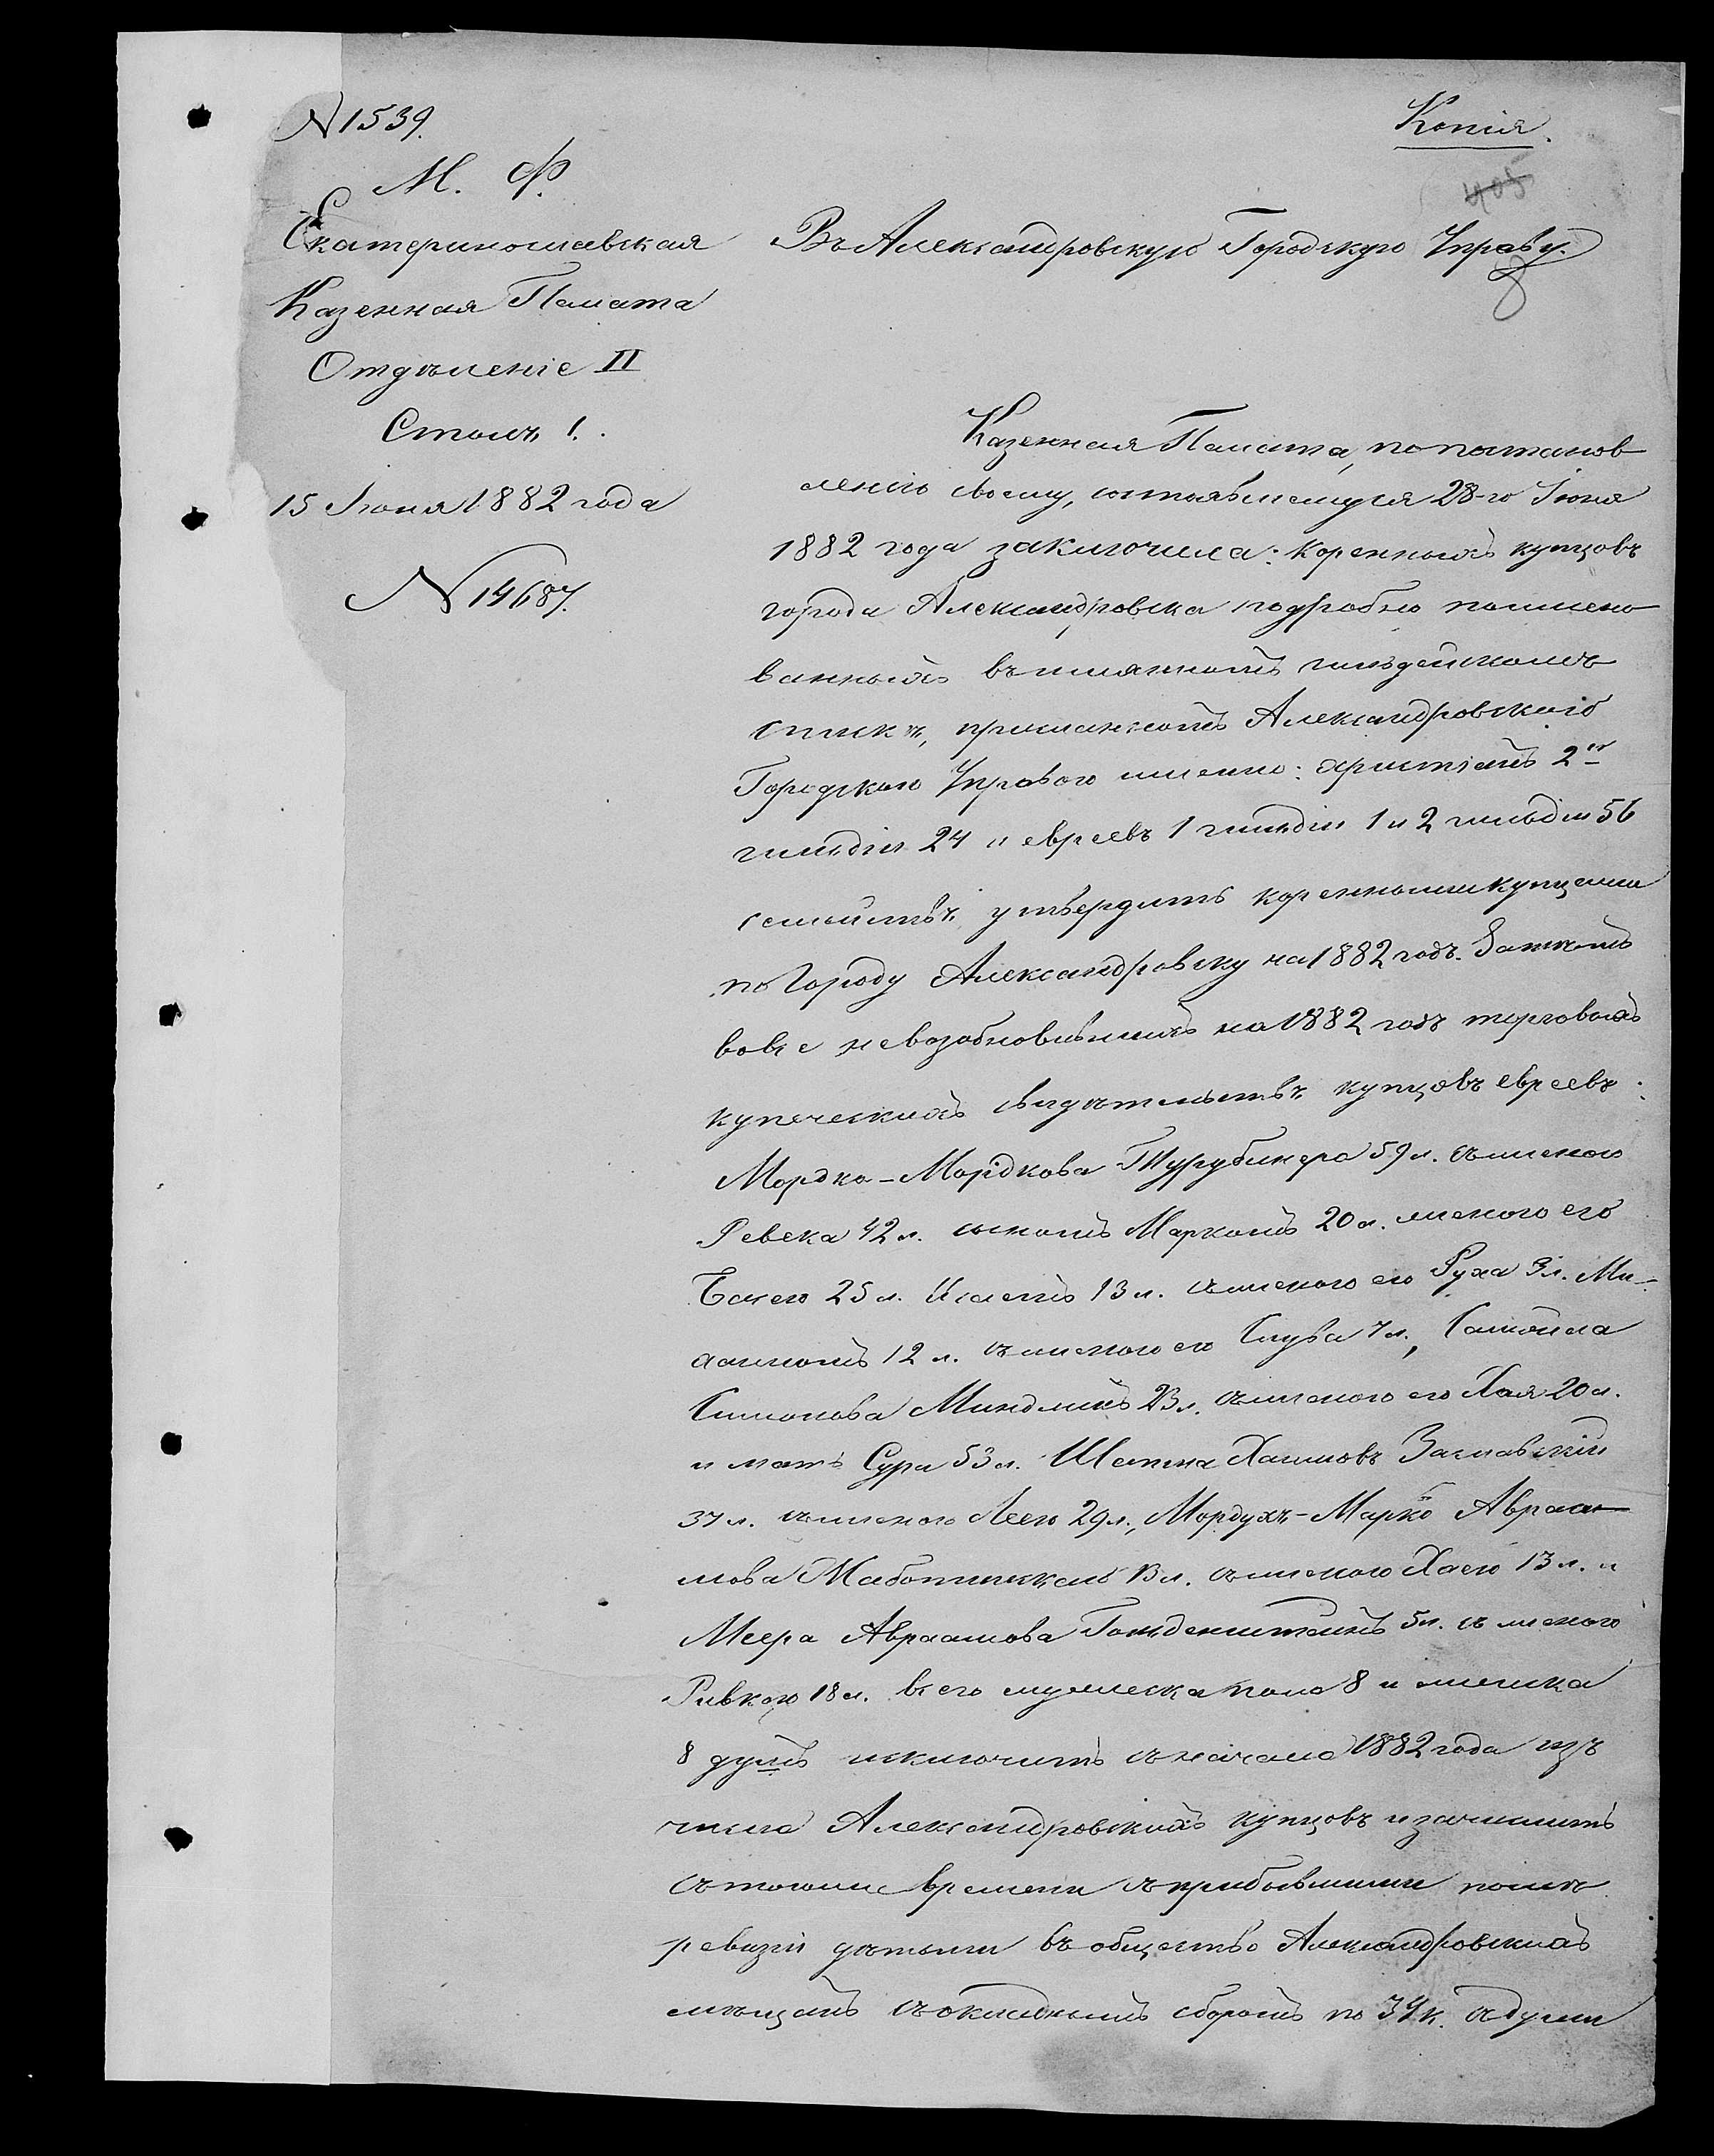 N 1539.
Копія.
М. Ф.
405
Екатеринославская
Казенная Палата
Отдѣленіе II
Столъ 1.
15 Іюня 1882 года
N 14687.
Въ Александровскую Городскую Управу.
8
Казенная Палата, по постанов
ленію своему, состоявшемуся 28-го Іюня
1882 года заключила: коренныхъ купцовъ
города Александровска подробно поимено
ванныхъ въ именномъ гильдейскомъ
спискѣ, присланномъ Александровскою
Городскою Управою именно: христіанъ 2й
гильдіи 24 и евреевъ 1 гильдіи 1 и 2 гильдіи 56
семействъ, утвердить коренными купцами
по городу Александровску на 1882 годъ. Затѣмъ
вовсе невозобновившихъ на 1882 годъ торговыхъ
купеческихъ свидѣтельствъ купцовъ евреевъ:
Мордко-Мордкова Турубинера 59 л. съ женою
Ревека 42 л. сыномъ Маркомъ 20 л. женою его
Басею 25 л. 13 л. съ женою его Руха 3 л.
12 л. съ женою его 7 л., Самойла
Симонова Миндлинъ 23 л. съ женою его Хая 20 л.
и мать Сура 53 л. Хаимовъ Заславскій
37 л. съ женою Леею 29 л., Мордухъ-Марко Авраа
мова 13 л. съ женою Хаею 13 л. и
Меера Авраамова Гольденштейнъ 5 л. съ женою
Ривкою 18 л. всего мужеска пола 8 и женска
8 душъ исключить съ начала 1882 года изъ
числа Александровскихъ купцовъ и зачислить
съ того же времени съ прибывшими послѣ
ревизіи дѣтьми въ общество Александровскихъ
мѣщанъ съ окладнымъ сборомъ по 34 к. съ души